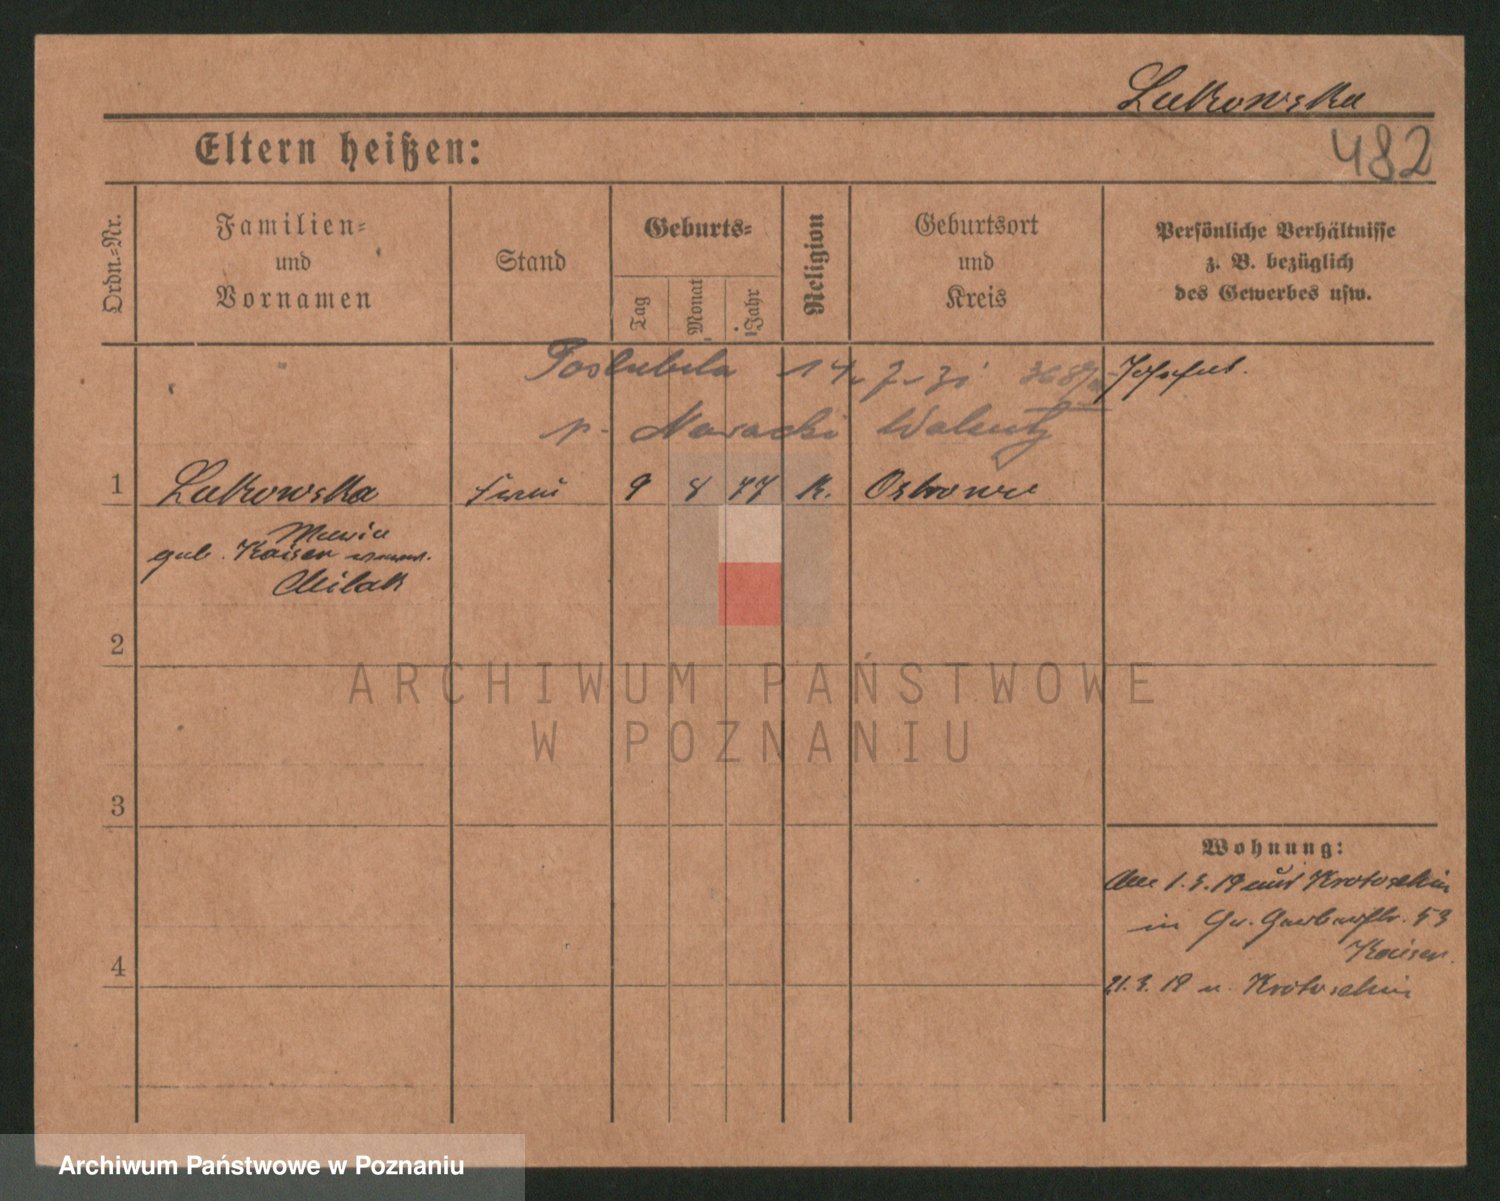 Lukowska
Eltern heißen:
482
Ordn.-Nr.
Familien-
und
Vornamen
Stand
Geburts-
Tag
Monat
Jahr
Religion
Geburtsort
und
Kreis
Persönliche Verhältnisse
z. B. bezüglich
des Gewerbes usw.
Poslubila 14. 7. 31
p. Nawacki Walenty
1 Lukowska 9 8 77 K. Ostrowo
Maria
geb. Kaiser
2
3
4
Wohnung:
1.3.19 aus Krotoschin
in Gr. Gerberstr. 53
Kaiser.
21.3.19 n. Krotoschin
ARCHIWUM PAŃSTWOWE
W POZNANIU
Archiwum Państwowe w Poznaniu